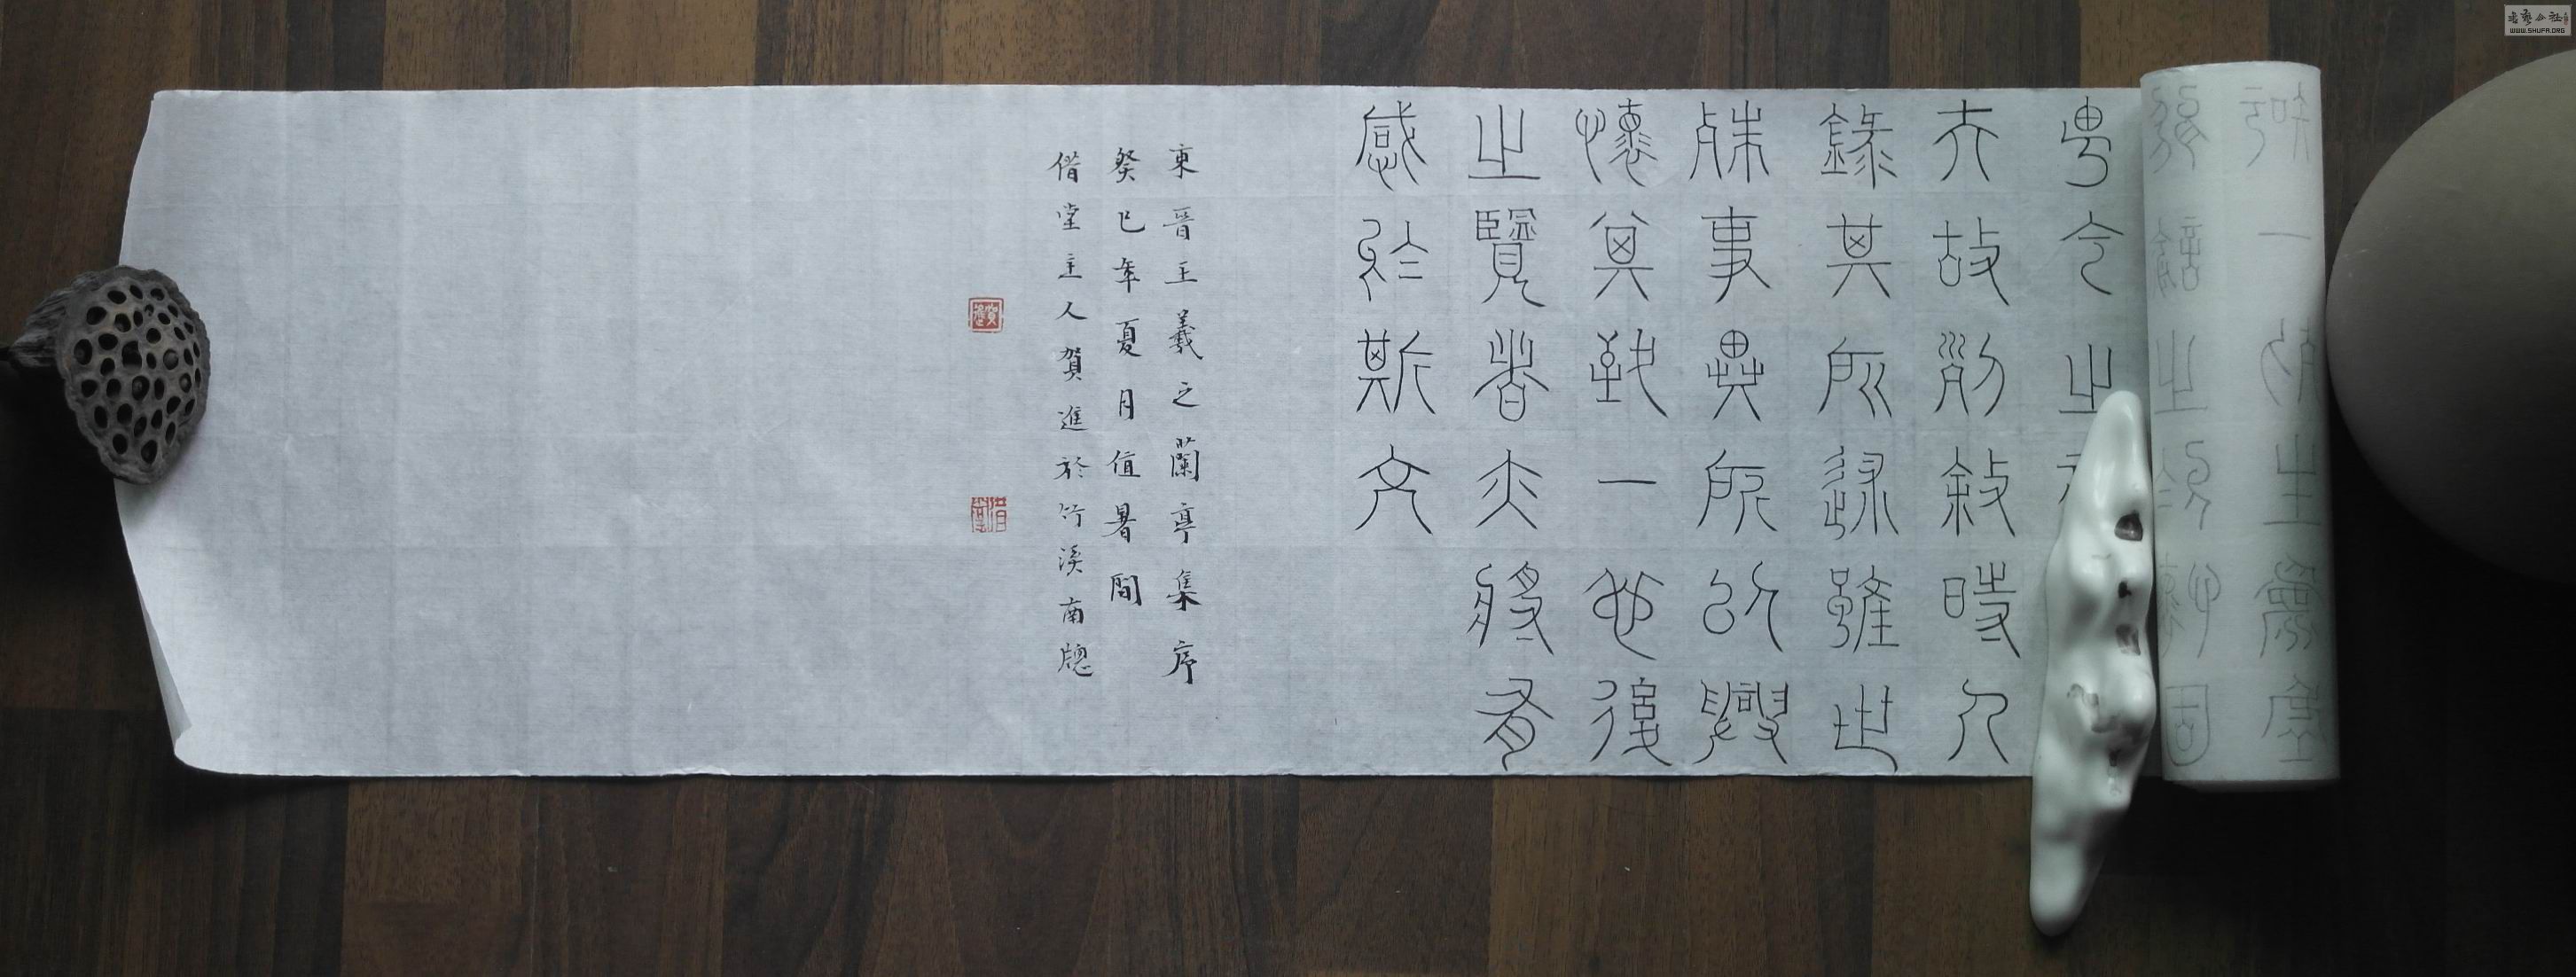 能喻之於懷固
知一死生爲虛
由今之
夫故列敘時人
錄其所述雖世
殊事異所以興
懷其致一也後
之覽者亦將有
感於斯文
東晉王羲之蘭亭集序
癸巳年夏月值暑間
借堂主人賀進於竹溪南牕
賀進
書藝公社
WWW.SHUFA.ORG